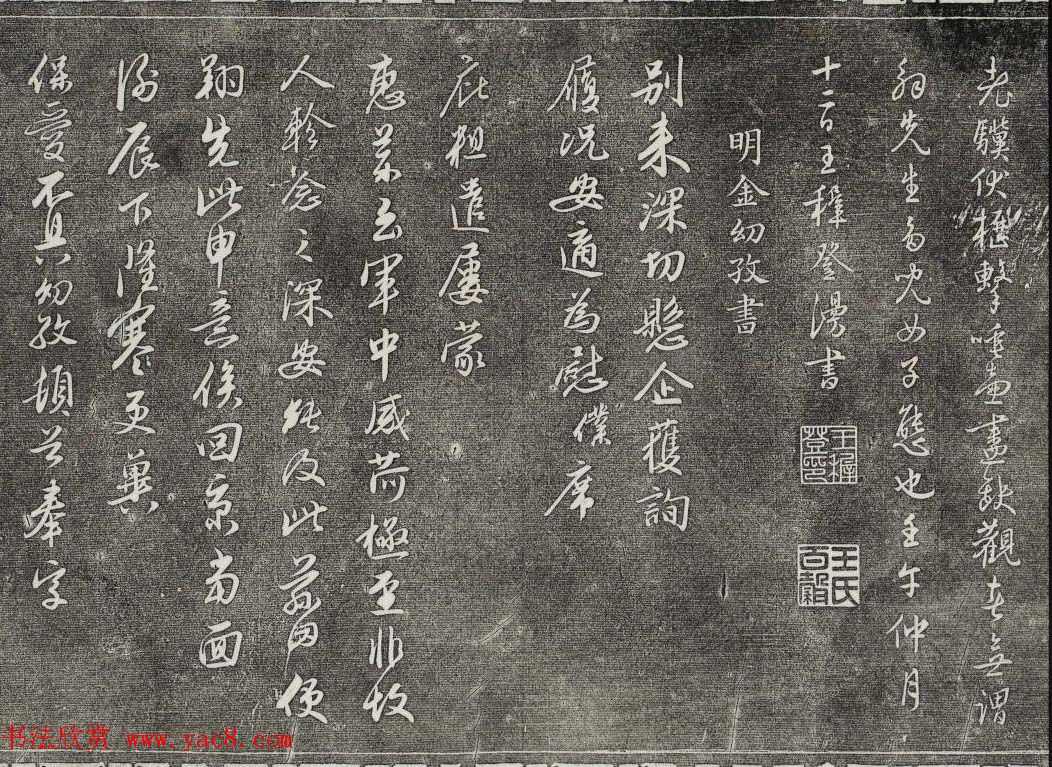 老驥伏櫪擊唾壺盡缺觀者無謂
翁先生為兒女子態也壬午仲月
十二日王穉登漫書
王穉登印
王氏百穀
明金幼孜書
別來深切懸企獲詢
履況安適為慰僕席
庇粗遣屢蒙
惠藥至軍中感荷極至非故
人軫念之深安能及此前因便
翔先此申意俟回京當面
謝辰下隆寒更冀
保愛不具幼孜頓首奉字
书法欣赏 www.yac8.com